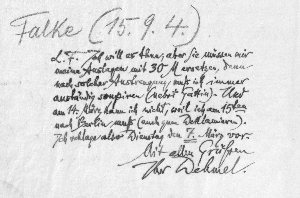 Falke (15.9.4.)
L. F. Ich will es thun, aber Sie müssen mir
meine Auslagen mit 30 M ersetzen, denn
nach solcher Anstrengung muß ich immer
anständig soupiren (nebst Gattin). Und
am 14. März kann ich nicht, weil ich am 15ten
nach Berlin muß (auch zum Deklamiren).
Ich schlage also Dienstag den 7. März vor.
Mit allen Grüßen
Ihr Dehmel.